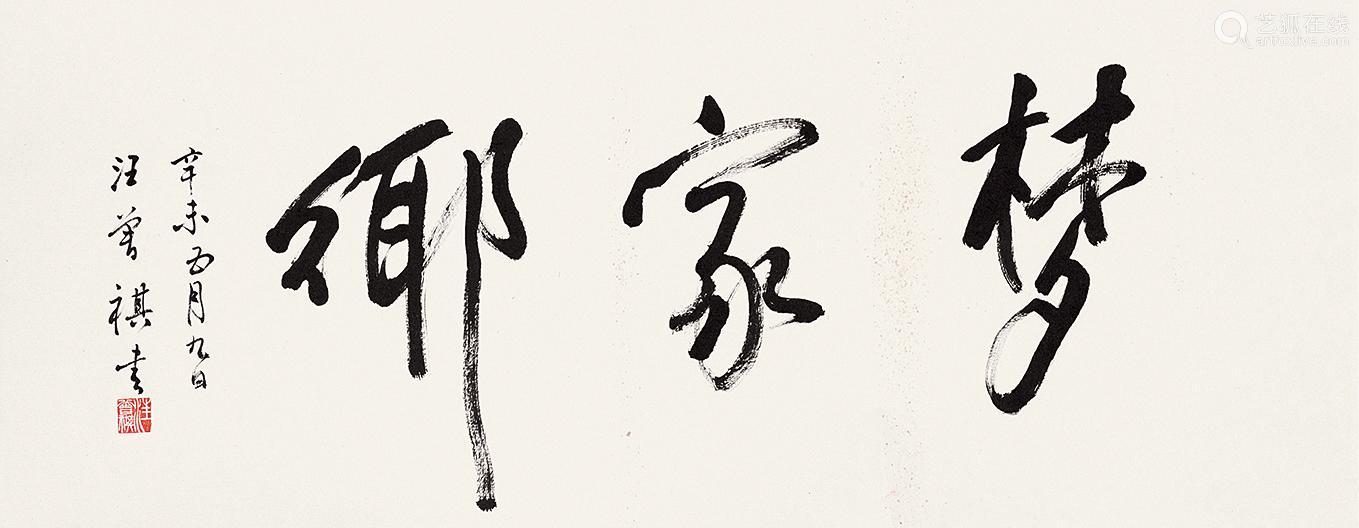 梦家鄉
辛未五月九日
汪曾祺书
艺狐在线
artfoxlive.com